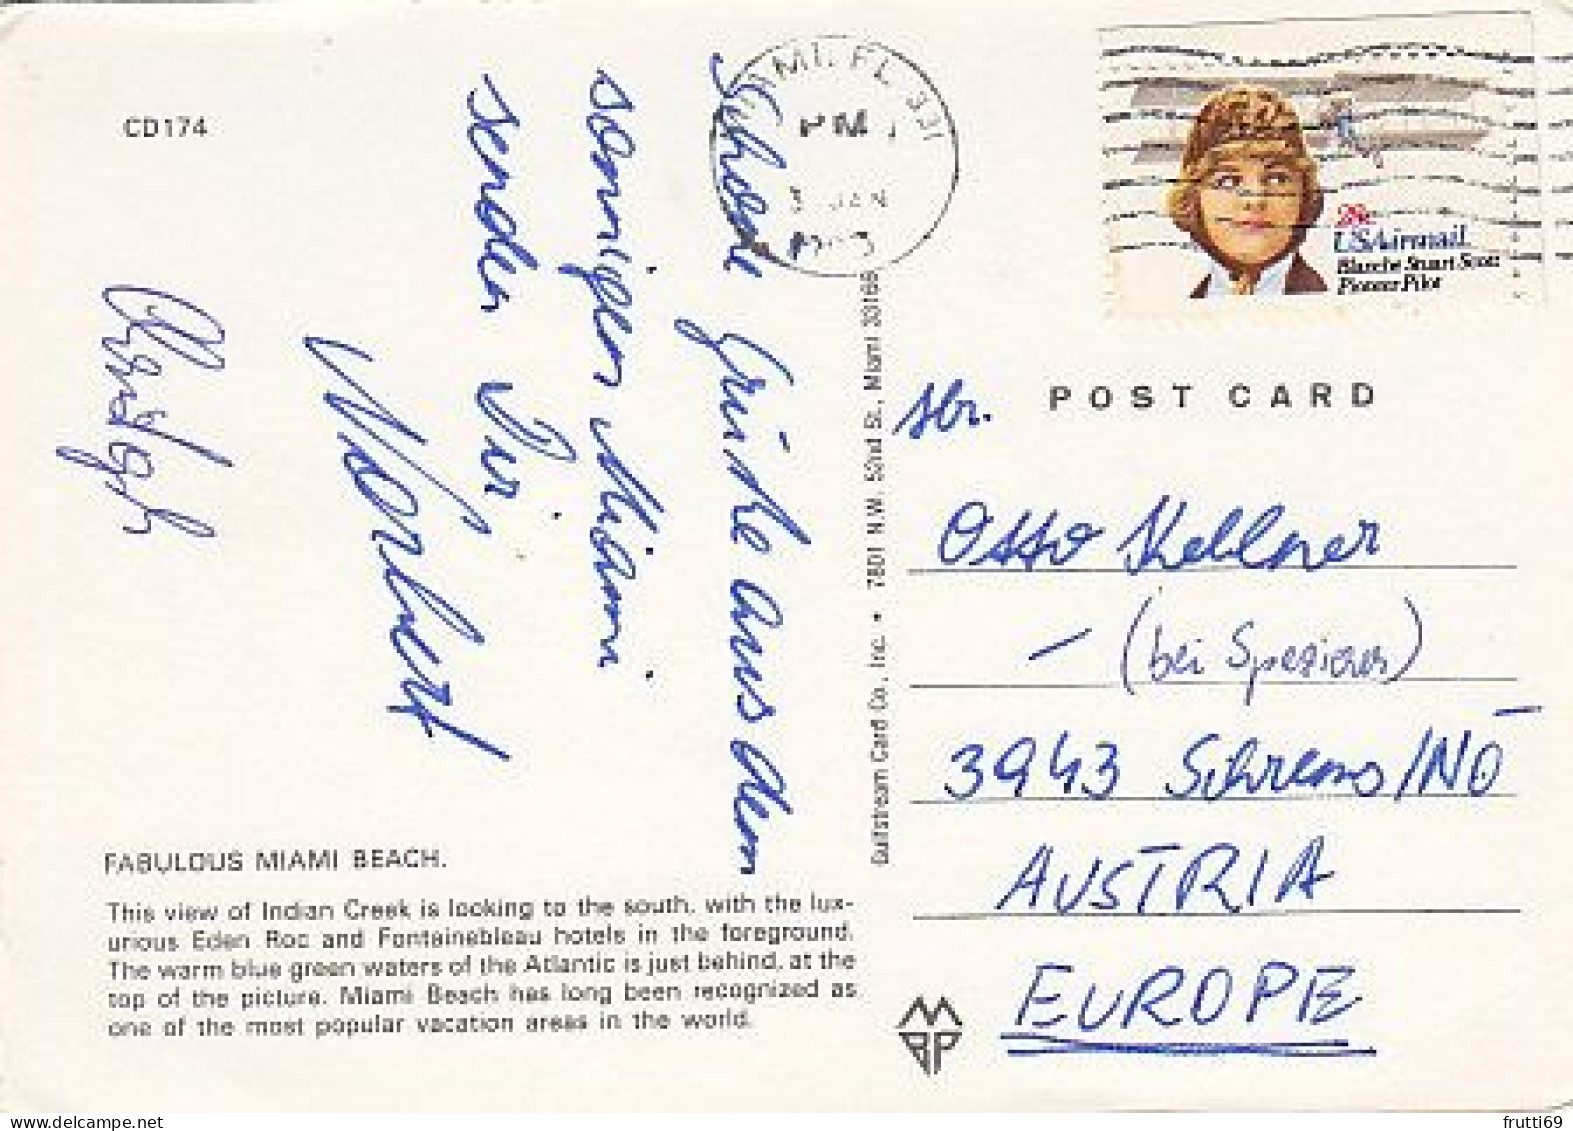 CD174
Schöne Grüße aus dem
sonnigen Miami
senden Dir
Norbert
MI, FL 331
PM
3 JAN
28c
USAirmail
Blanche Stuart Scott
Pioneer Pilot
POST CARD
Hr.
Otto Kellner
- (bei Spezierer)
3943 Schrems/NÖ
AUSTRIA
EUROPE
Gulfstream Card Co., Inc. • 7801 N.W. 52nd St., Miami 33166
FABULOUS MIAMI BEACH.
This view of Indian Creek is looking to the south, with the lux-
urious Eden Roc and Fontainebleau hotels in the foreground.
The warm blue green waters of the Atlantic is just behind, at the
top of the picture. Miami Beach has long been recognized as
one of the most popular vacation areas in the world.
frutti69